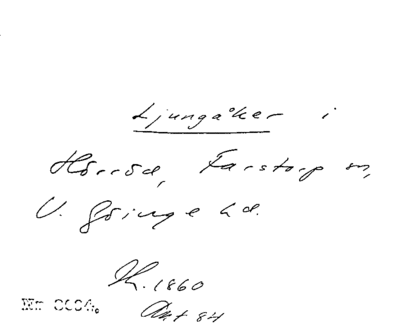 Ljungåker i
Hörröd, Farstorp sn,
V. Göinge hd.
Th. 1860
Ant 84